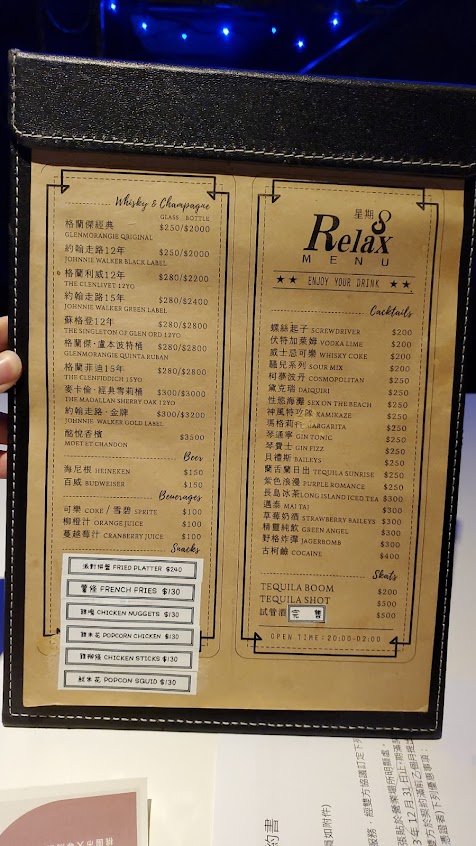 Whisky & Champagne
GLASS BOTTLE
格蘭傑經典 $250/$2000
GLENMORANGIE ORIGINAL
約翰走路12年 $250/$2000
JOHNNIE WALKER BLACK LABEL
格蘭利威12年 $280/$2200
THE GLENLIVET 12YO
約翰走路15年 $280/$2400
JOHNNIE WALKER GREEN LABEL
蘇格登12年 $280/$2800
THE SINGLETON OF GLEN ORD 12YO
格蘭傑·盧本波特桶 $280/$2800
GLENMORANGIE QUINTA RUBAN
格蘭菲迪15年 $280/$2800
THE GLENFIDDICH 15YO
麥卡倫·經典雪莉桶 $300/$3000
THE MACALLAN SHERRY OAK 12YO
約翰走路·金牌 $300/$3200
JOHNNIE WALKER GOLD LABEL
酩悅香檳 $3500
MOET ET CHANDON
Beer
海尼根 HEINEKEN $150
百威 BUDWEISER $150
Beverages
可樂 COKE / 雪碧 SPRITE $100
柳橙汁 ORANGE JUICE $100
蔓越莓汁 CRANBERRY JUICE $100
Snacks
派對拼盤 FRIED PLATTER $240
薯條 FRENCH FRIES $130
雞塊 CHICKEN NUGGETS $130
雞米花 POPCORN CHICKEN $130
雞柳條 CHICKEN STICKS $130
魷米花 POPCON SQUID $130
星期8
Relax
MENU
★★ ENJOY YOUR DRINK ★★
Cocktails
螺絲起子 SCREWDRIVER $200
伏特加萊姆 VODKA LIME $200
威士忌可樂 WHISKY COKE $200
騷兒系列 SOUR MIX $200
柯夢波丹 COSMOPOLITAN $250
黛克瑞 DAIQUIRI $250
性慾海灘 SEX ON THE BEACH $250
神風特攻隊 KAMIKAZE $250
瑪格莉特 MARGARITA $250
琴通寧 GIN TONIC $250
琴費士 GIN FIZZ $250
貝禮斯 BAILEYS $250
龍舌蘭日出 TEQUILA SUNRISE $250
紫色浪漫 PURPLE ROMANCE $250
長島冰茶 LONG ISLAND ICED TEA $300
邁泰 MAI TAI $300
草莓奶酒 STRAWBERRY BAILEYS $300
精靈純飲 GREEN ANGEL $300
野格炸彈 JAGERBOMB $300
古柯鹼 COCAINE $400
Shots
TEQUILA BOOM $200
TEQUILA SHOT $500
試管酒 完售 $500
OPEN TIME | 20:00-02:00
約書
如附件)
服務，經雙方協議訂定下列